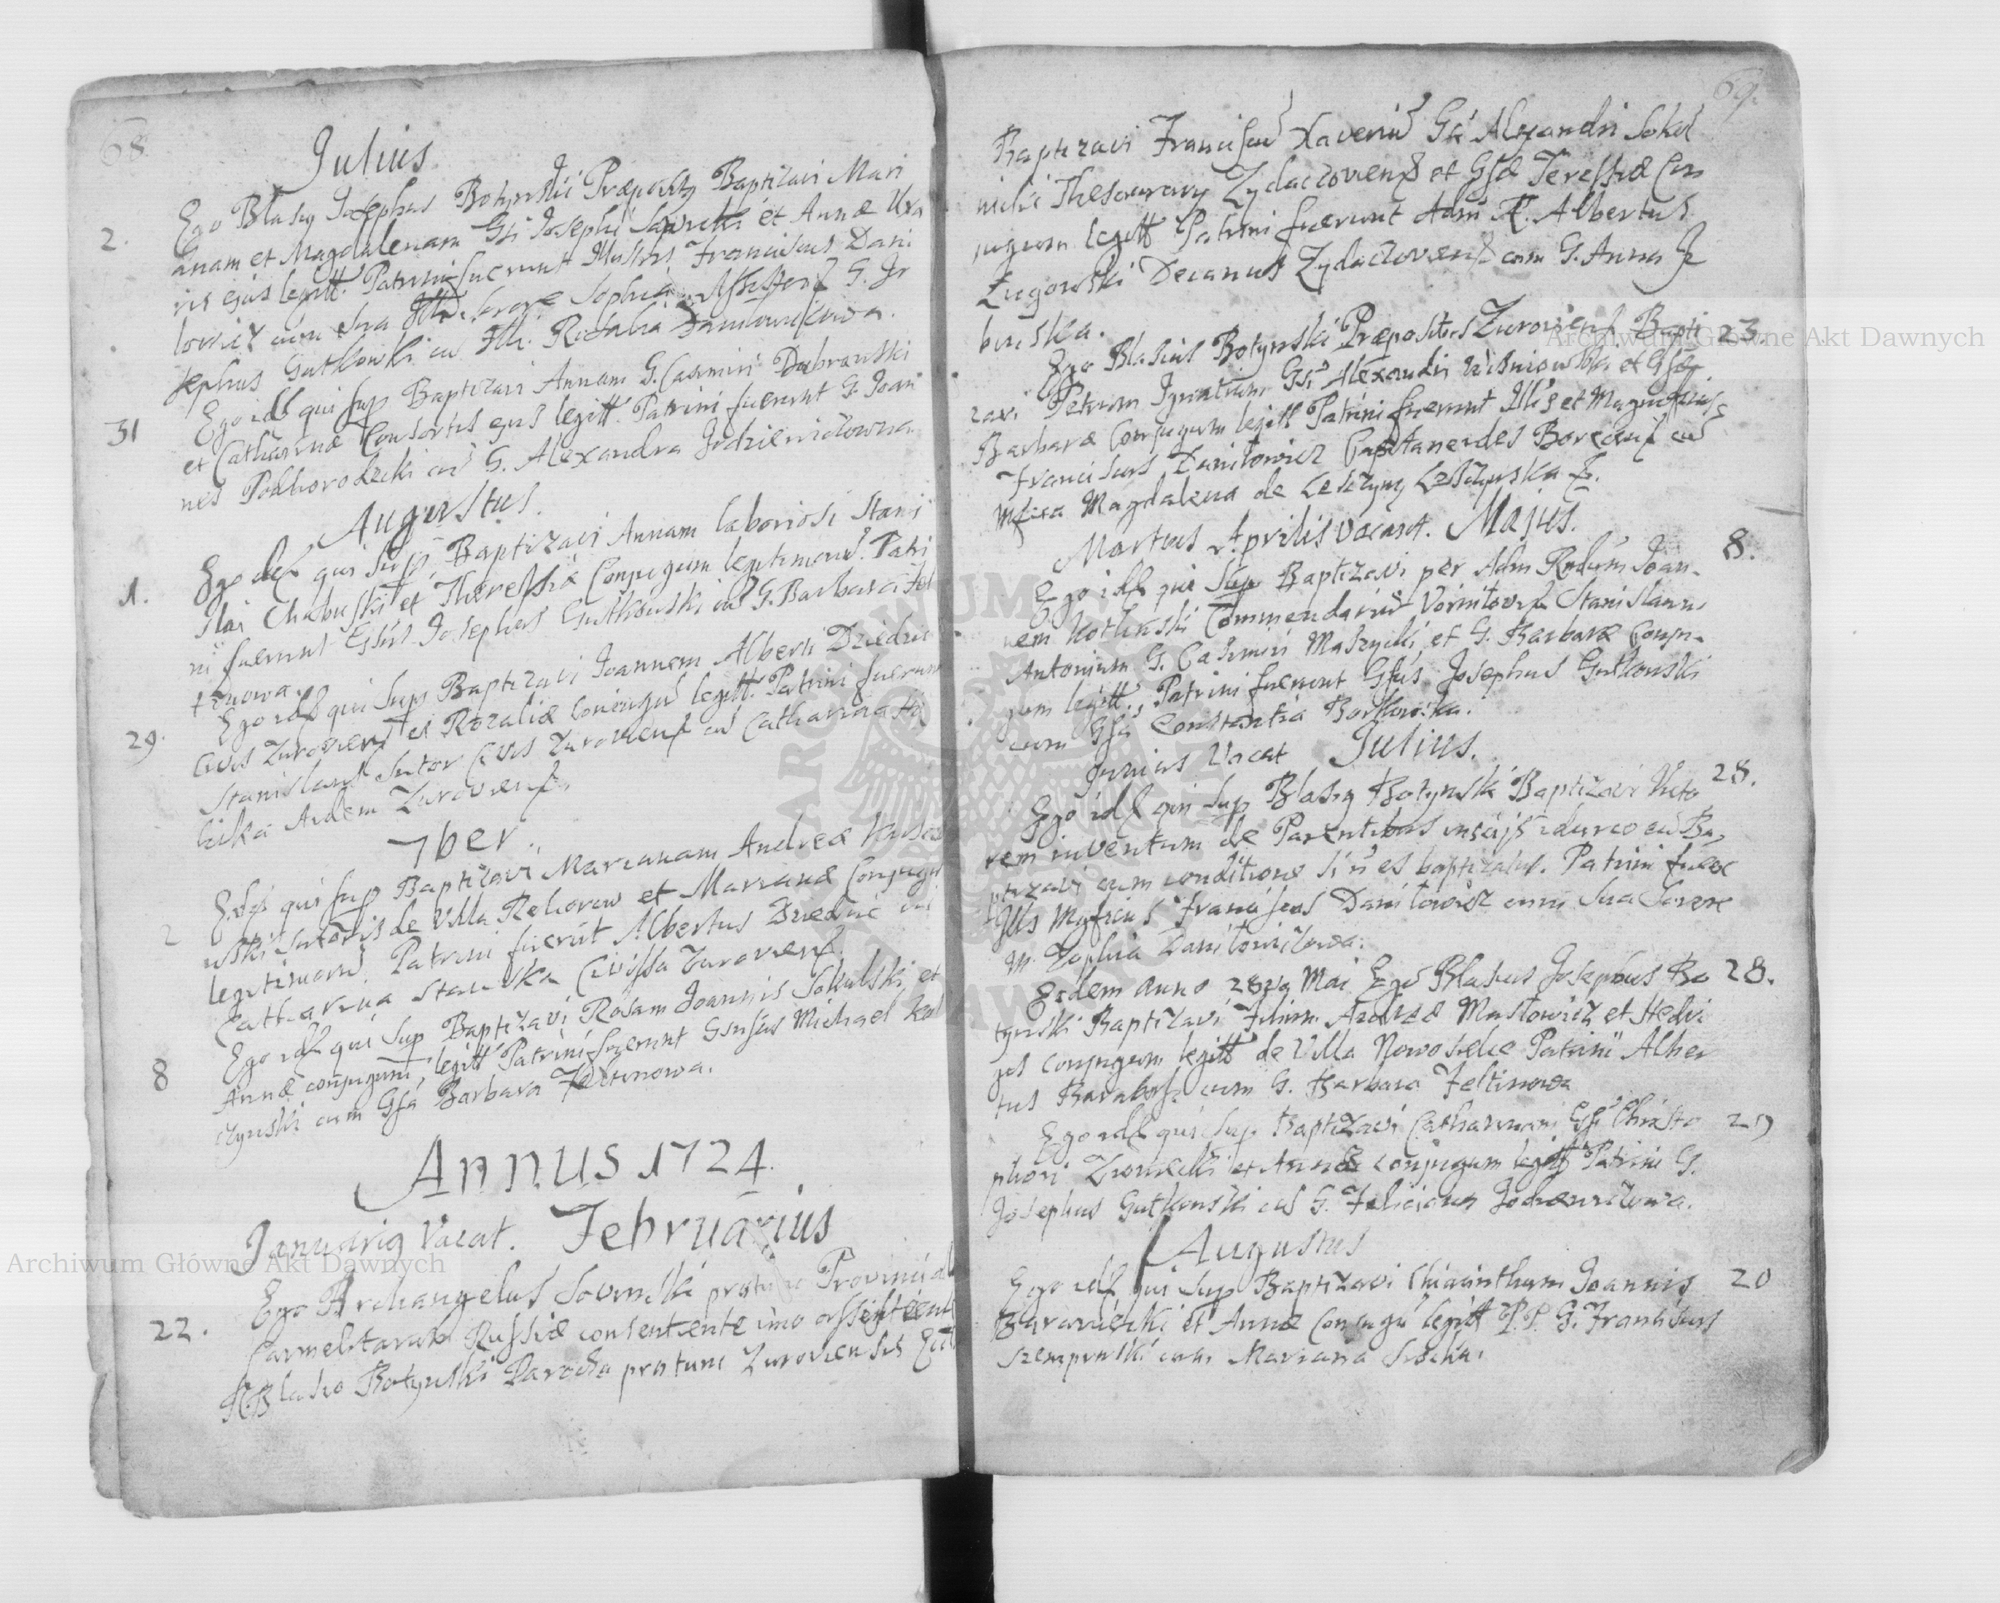 68
Julius
2. Ego Blasius Josephus Botynski Præpositus Baptizavi Mari
anam et Magdalenam Gsi Josephi Sawicki et Annæ Uxo
ris ejus legitt. Patrini fuerunt Illustris Franciscus Dani
lowicz cum sua Sorore Sophia. Assistens G. Jo
sephus Gutkowski cū Ill. Rosalia Daniłowiczowa.
31 Ego idē qui sup Baptizavi Annam G. Casimiri Dąbrowski
et Catharinæ Consortis ejus legitt. Patrini fuerunt G. Joan
nes Podhorodecki cū G. Alexandra Jodzieniczowna.
Augustus.
1. Ego idē qui sup Baptizavi Annam laboriosi Stanis
slai et Theressiæ Conjugum legitimorū. Patri
ni fuerunt Gsūs Josephus Gutkowski cū G. Barbara Fel
tynowa.
29. Ego idē qui sup Baptizavi Joannem Alberti Dziedzic
Civis Zuroviens et Rozaliæ Coniugū legitt. Patrini fuerunt
Stanislaus Sutor Civis Zuroviens cū Catharina
Zuroviens.
7ber.
2 Ego qui sup Baptizavi Marianam Andreæ
Sutoris de Villa Rehorow et Marianæ Conjugū
legitimorū. Patrini fuerūt Albertus Dziedzic cū
Catharina Civissa Zuroviens.
8 Ego idē qui sup Baptizavi Rosam Joannis Sokulski et
Annæ conjugum legitt Patrini fuerunt Gnsūs Michael
czynski cum Gsa Barbara Feltinowa.
Annus 1724.
Januarius Vacat. Februarius
22. Ego Archangelus Provincial
Carmelitarum Russiæ consentiente imo assistente
R. Blasio Botynski Parocho protunc Zuroviensis
69.
Baptizavi Franciscū Xaveriū Gsi Alexandri Sokol
nicki Thesaurarij Zydaczoviens et Gsæ Teressiæ Con
jugum legitt Patrini fuerunt Adm R. Albertus
Zugowski Decanus Zydaczoviens cum G. Anna
binska.
Ego Blasius Botynski Præpositus Zuroviens Bapti 23.
zavi Petrum Ignatium Gsi Alexandri Wisniowski et Gsæ
Barbaræ Conjugum legitt Patrini fuerunt Illis et Magnificus
Franciscus Daniłowicz Capitaneides Boreccens cū
Mfica Magdalena de Leszczyny Leszczynska
Martius Aprilis vacant. Majus.
Ego idē qui sup Baptizavi per Adm Rndum Joan- 8.
nem Kotlinski Commendariū Stanislaum
Antonium G. Casimiri Maszycki et G. Barbaræ Conju-
gum legitt., Patrini fuerunt Gsūs Josephus Gutkowski
cum Gsa Constantia Borkowska.
Junius Vacat Julius.
Ego idē qui sup Blasius Botynski Baptizavi Victo 28.
rem inventum de Parentibus
ptizavi cum conditione si ñ es baptizatus. Patrini fuere
Illis Mgficus Franciscus Daniłowicz cum sua Sorore
M. Zophia Daniłowiczowa.
Eodem anno Mai Ego Blasius Josephus Bo 28.
tynski Baptizavi Andreæ Masłowicz et Hedvi
gis conjugum legitt de Villa Nowosielce Patrini Alber
tus cum G. Barbara Feltinowa
Ego idē qui sup. Baptizavi Catharinam Gsi Christo 29
phori et Annæ conjugum legitt Patrini G.
Josephus Gutkowski cū G. Feliciana Jodzieniczowa.
Augustus
Ego idē qui sup Baptizavi Chiacinthum Joannis 20
Baraniecki et Annæ Conjugū legitt P.P. G. Franciscus
cum Mariana
Archiwum Główne Akt Dawnych
Archiwum Główne Akt Dawnych